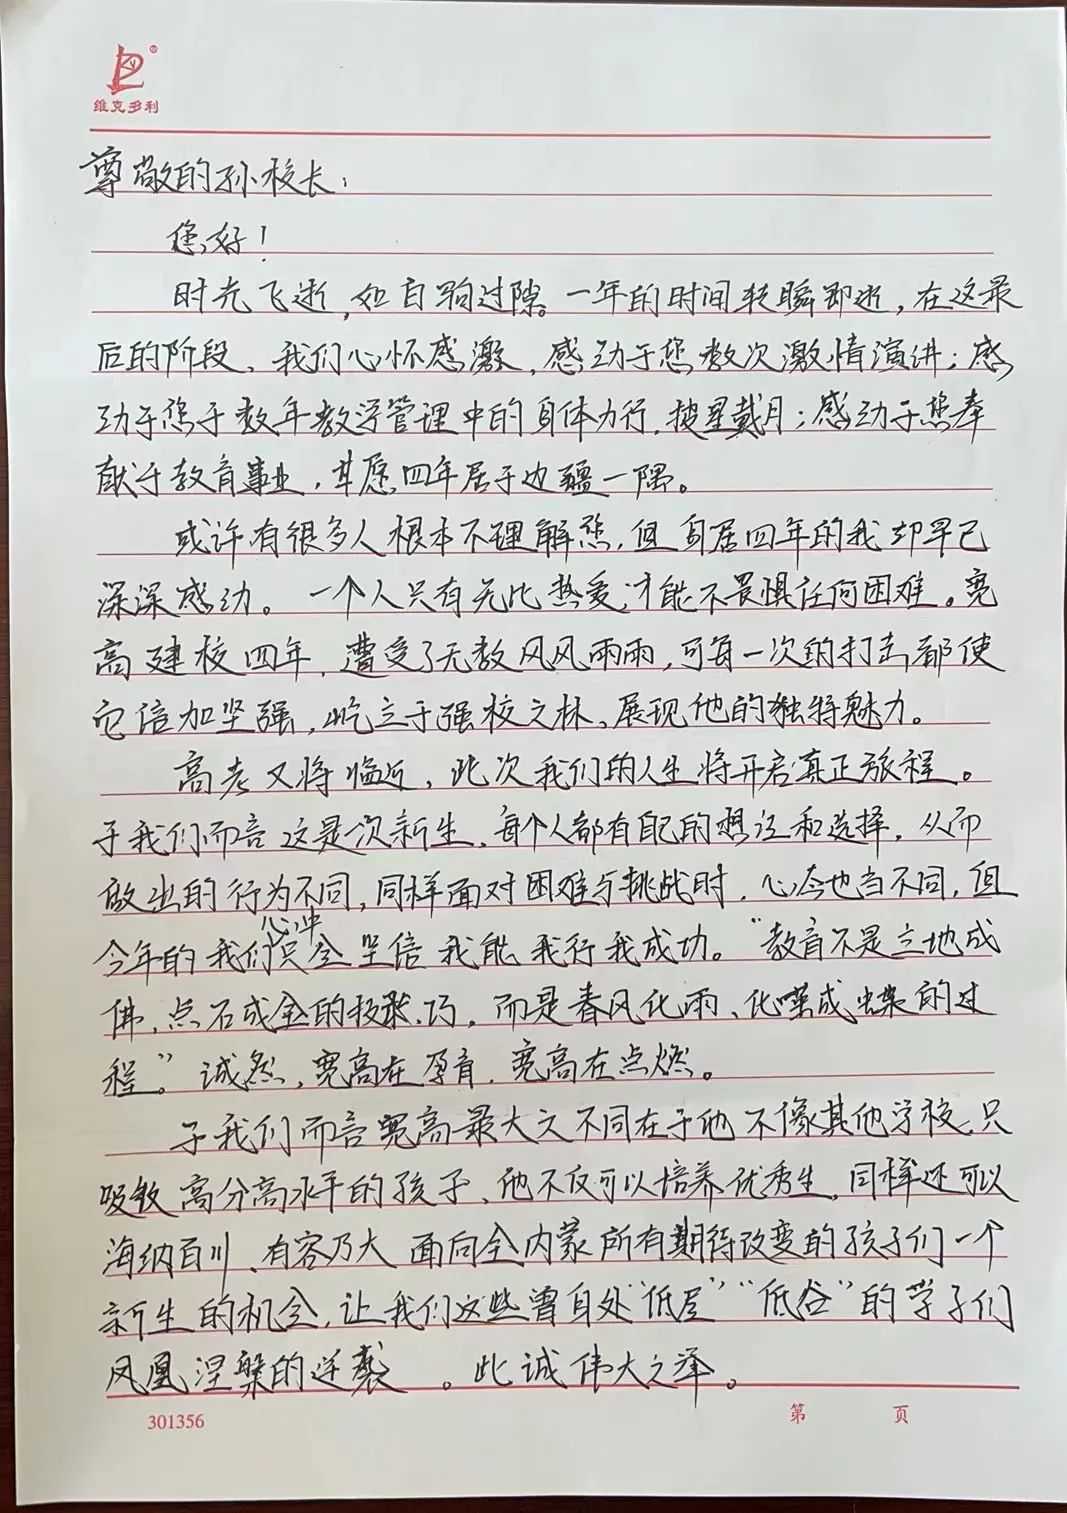 维克多利
尊敬的孙校长：
您好！
时光飞逝，如白驹过隙。一年的时间转瞬即逝，在这最
后的阶段、我们心怀感激，感动于您数次激情演讲；感
动于您于数年教学管理中的身体力行，披星戴月；感动于您奉
献于教育事业，甘愿四年居于边疆一隅。
或许有很多人根本不理解您，但身居四年的我却早已
深深感动。一个人只有无比热爱，才能不畏惧任何困难。宽
高建校四年，遭受了无数风风雨雨，可每一次的打击都使
它倍加坚强，屹立于强校之林、展现他的独特魅力。
高考又将临近，此次我们的人生将开启真正旅程。
于我们而言这是一次新生，每个人都有自己的想法和选择，从而
做出的行为不同，同样面对困难与挑战时，心态也自不同，但
今年的我们心中只会坚信我能我行我成功。“教育不是立地成
佛，点石成金的技巧，而是春风化雨、化蛹成蝶的过
程。”诚然，宽高在孕育，宽高在点燃。
于我们而言宽高最大之不同在于他不像其他学校，只
吸收高分高水平的孩子、他不仅可以培养优秀生，同样还可以
海纳百川、有容乃大 面向全内蒙所有期待改变的孩子们一个
新生的机会，让我们这些曾身处“低层”“低谷”的学子们
凤凰涅槃的逆袭。此诚伟大之举。
301356
第 页